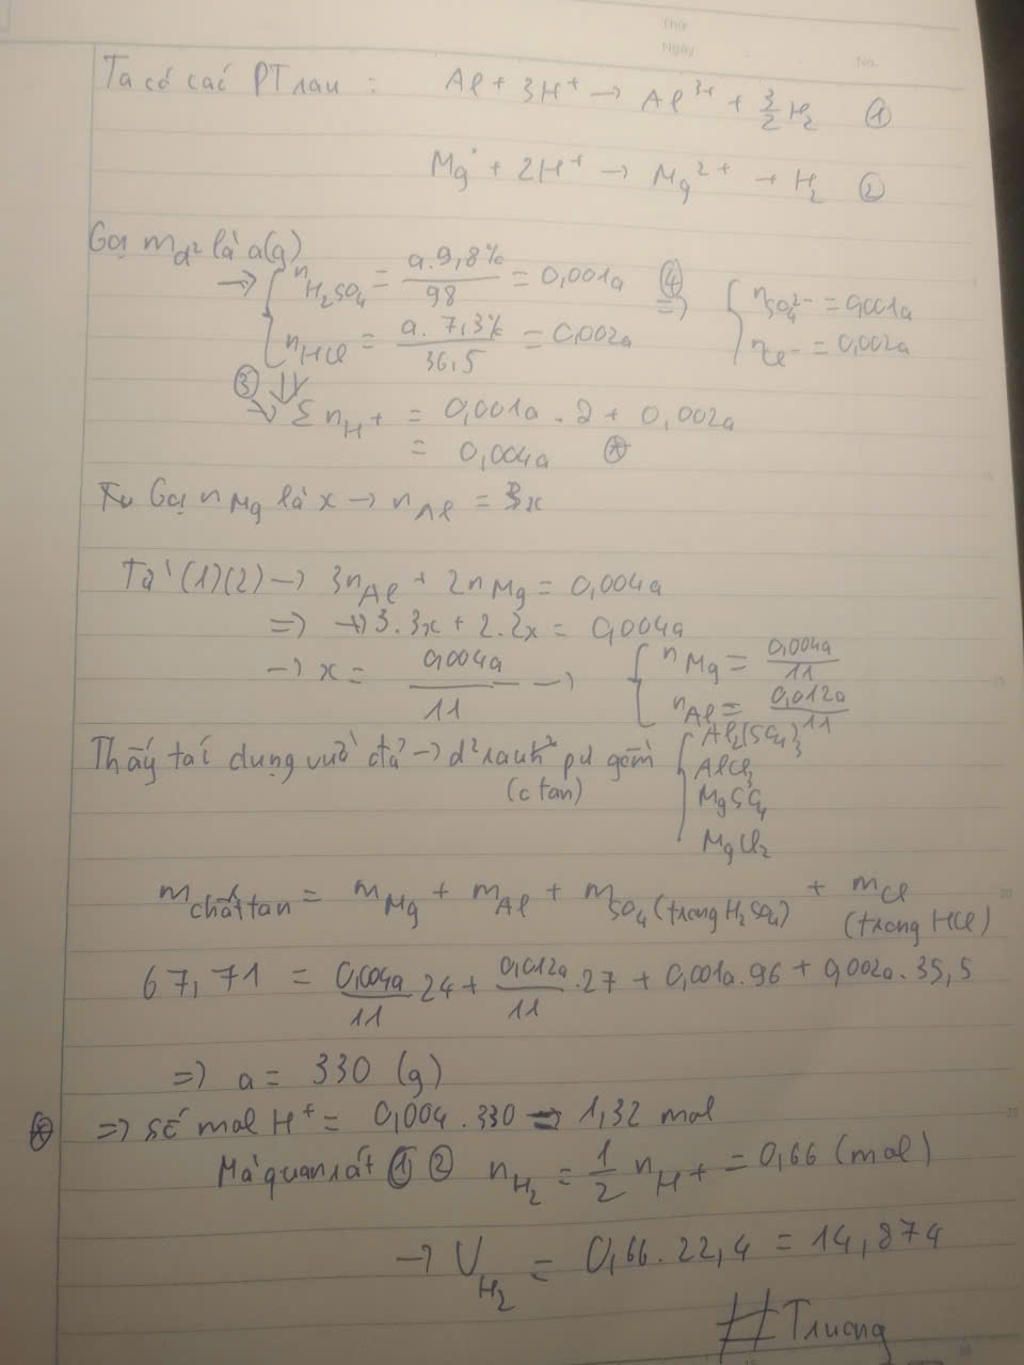 Thứ
Ngày
No.
Ta có các PT sau : Al + 3H⁺ → Al³⁺ + 3/2 H₂ ①
Mg + 2H⁺ → Mg²⁺ + H₂ ②
Gọi m_d² là a(g)
→ { n_H₂SO₄ = a.9,8%/98 = 0,001a ④ ⇒ { n_SO₄²⁻ = 0,001a
n_HCl = a.7,3%/36,5 = 0,002a n_Cl⁻ = 0,002a
③ ⇓
→ Σn_H⁺ = 0,001a . 2 + 0,002a
= 0,004a ⊛
Gọi n_Mg là x → n_Al = 3x
Từ (1)(2) → 3n_Al + 2n_Mg = 0,004a
⇒ → 3.3x + 2.2x = 0,004a
→ x = 0,004a/11 → { n_Mg = 0,004a/11
n_Al = 0,012a/11
Thấy tác dụng vừa đủ → d² sau pứ gồm { Al₂(SO₄)₃
(c tan) AlCl₃
MgSO₄
MgCl₂
m_chất tan = m_Mg + m_Al + m_SO₄ (trong H₂SO₄) + m_Cl (trong HCl)
67,71 = 0,004a/11 24 + 0,012a/11 .27 + 0,001a.96 + 0,002a.35,5
⇒ a = 330 (g)
⊛ ⇒ số mol H⁺ = 0,004.330 = 1,32 mol
Mà quan sát ① ② n_H₂ = 1/2 n_H⁺ = 0,66 (mol)
→ V_H₂ = 0,66.22,4 = 14,874
#Truong